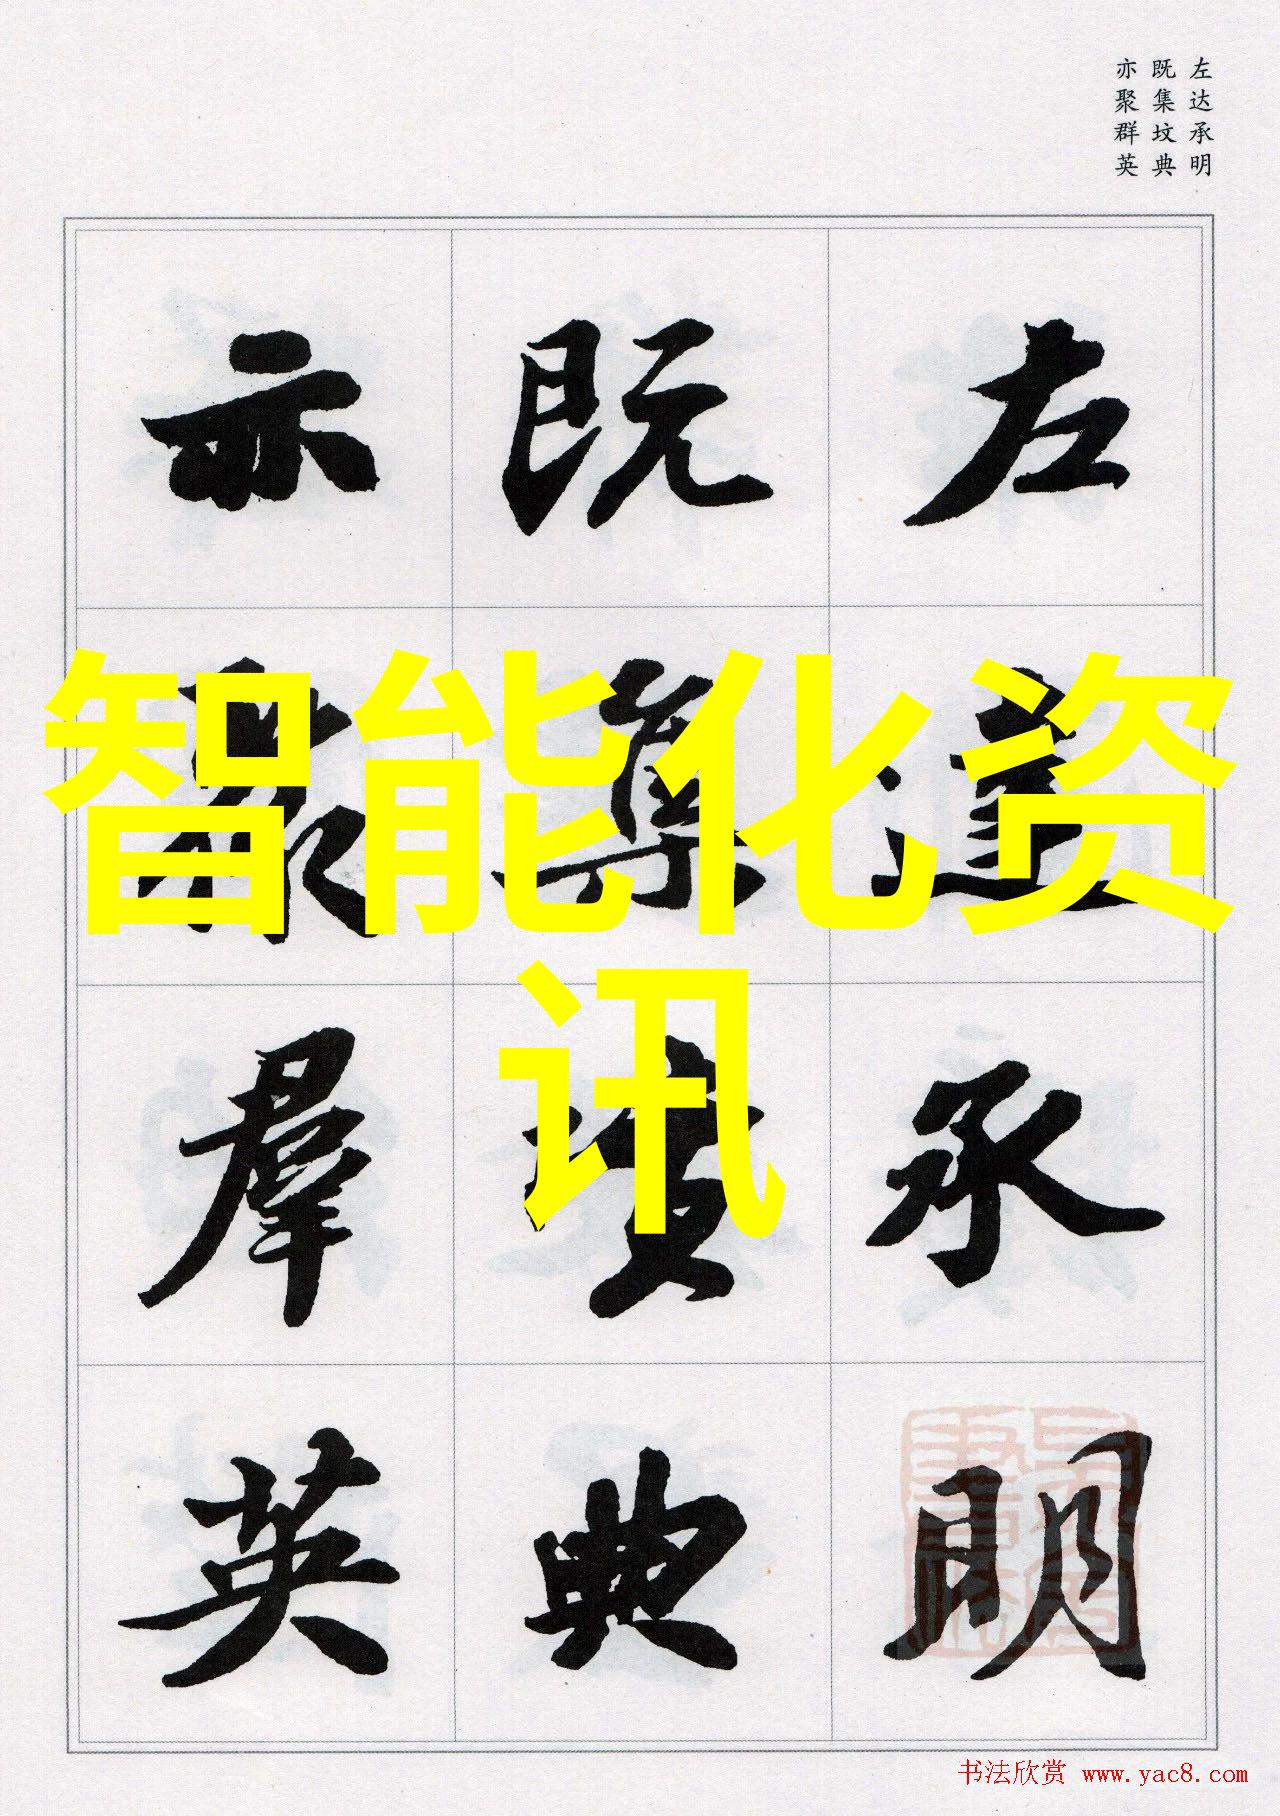 左达承明
既集坟典
亦聚群英
左達承明
既集墳典
亦聚羣英
智能化资
讯
书法欣赏 www.yac8.com